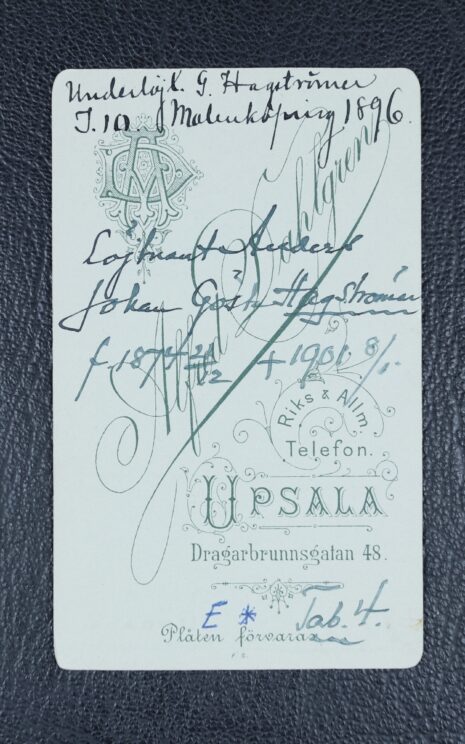 Underlöjt. G. Hagströmer
I.10. Malmköping 1896.
AD
Alfred Dahlgren
Löjtnant Anders
Johan Gösta Hagströmer
f. 1874 21/12 + 1901 8/1.
Riks & Allm.
Telefon.
UPSALA
Dragarbrunnsgatan 48.
E * Tab. 4.
Plåten förvaras